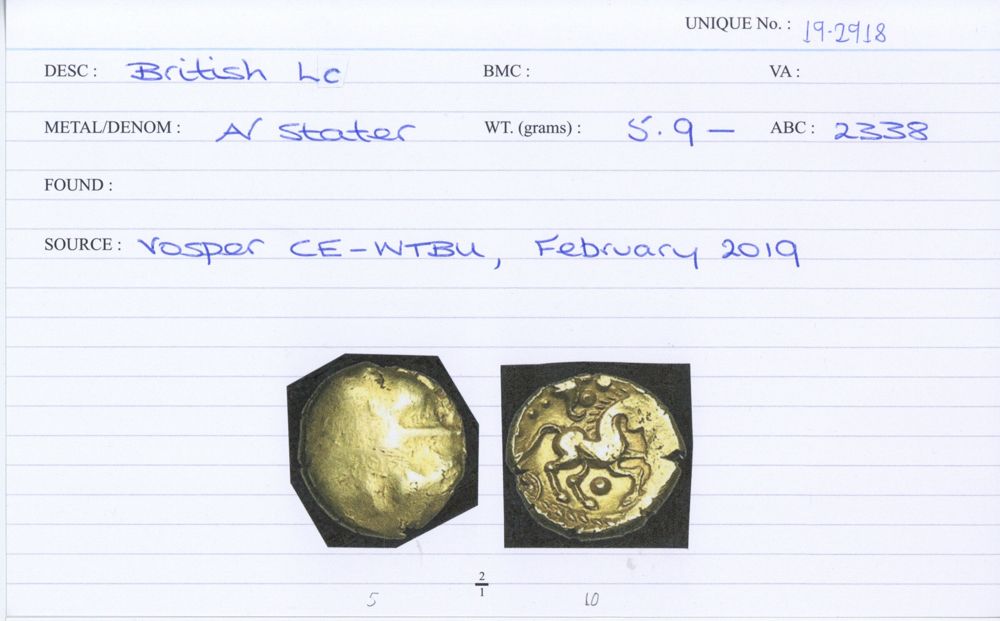 UNIQUE No. : 19-2918
DESC : British Lc BMC : VA :
METAL/DENOM : AV Stater WT. (grams) : 5.9 — ABC : 2338
FOUND :
SOURCE : Vosper CE-WTBU, February 2019
2
1
5 10